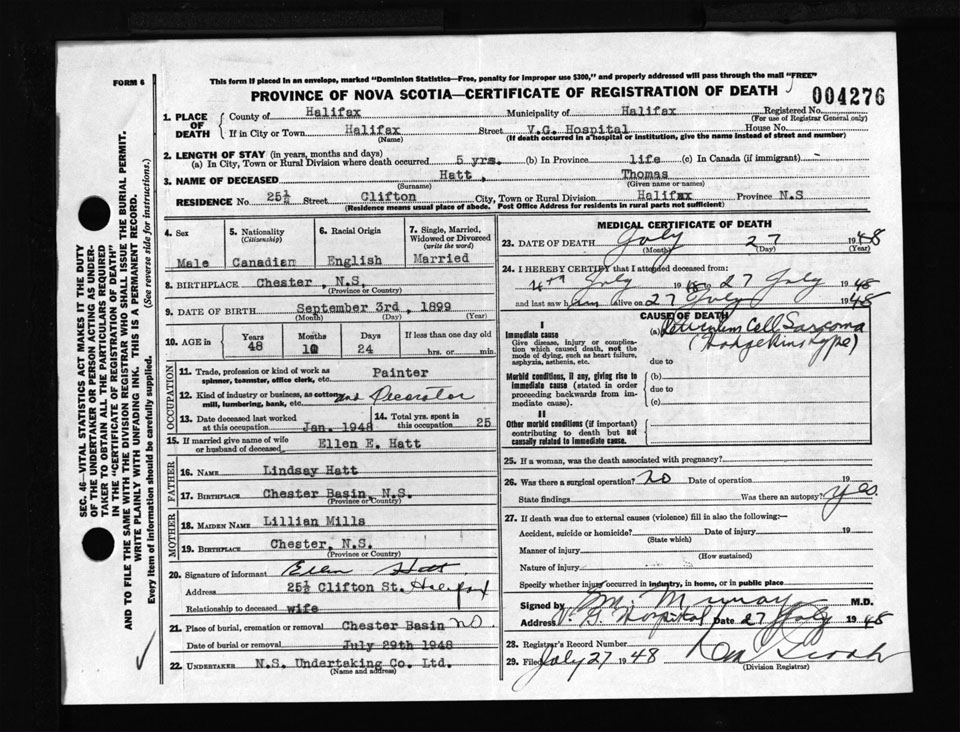 FORM 6
This form if placed in an envelope, marked "Dominion Statistics—Free, penalty for improper use $300," and properly addressed will pass through the mail "FREE"
PROVINCE OF NOVA SCOTIA—CERTIFICATE OF REGISTRATION OF DEATH
004276
1. PLACE OF DEATH
County of Halifax Municipality of Halifax Registered No.
(For use of Registrar General only)
If in City or Town Halifax Street V.G. Hospital House No.
(Name) (If death occurred in a hospital or institution, give the name instead of street and number)
2. LENGTH OF STAY (in years, months and days)
(a) In City, Town or Rural Division where death occurred 5 yrs. (b) In Province life (c) In Canada (if immigrant) -
3. NAME OF DECEASED Hatt, Thomas
(Surname) (Given name or names)
RESIDENCE No 25½ Street Clifton City, Town or Rural Division Halifax Province N.S
(Residence means usual place of abode. Post Office Address for residents in rural parts not sufficient)
4. Sex
Male
5. Nationality
(Citizenship)
Canadian
6. Racial Origin
English
7. Single, Married, Widowed or Divorced
(write the word)
Married
8. BIRTHPLACE Chester, N.S.
(Province or Country)
9. DATE OF BIRTH September 3rd, 1899
(Month) (Day) (Year)
10. AGE in
Years Months Days If less than one day old
48 10 24 hrs. or min.
OCCUPATION
11. Trade, profession or kind of work as spinner, teamster, office clerk, etc. Painter
12. Kind of industry or business, as cotton mill, lumbering, bank, etc. and Decorator
13. Date deceased last worked at this occupation Jan. 1948
14. Total yrs. spent in this occupation 25
15. If married give name of wife or husband of deceased Ellen E. Hatt
FATHER
16. NAME Lindsay Hatt
17. BIRTHPLACE Chester Basin, N.S.
(Province or Country)
MOTHER
18. MAIDEN NAME Lillian Mills
19. BIRTHPLACE Chester, N.S.
(Province or Country)
20. Signature of informant Ellen Hatt
Address 25½ Clifton St. Halifax
Relationship to deceased wife
21. Place of burial, cremation or removal Chester Basin N.S.
Date of burial or removal July 29th 1948
22. UNDERTAKER N.S. Undertaking Co. Ltd.
(Name and address)
MEDICAL CERTIFICATE OF DEATH
23. DATE OF DEATH July 27 1948
(Month) (Day) (Year)
24. I HEREBY CERTIFY that I attended deceased from:
July 19 to 27 July 1948
and last saw h im alive on 27 July 1948
CAUSE OF DEATH
I
Immediate cause
Give disease, injury or complication which caused death, not the mode of dying, such as heart failure, asphyxia, asthenia, etc.
(a) Reticulum Cell Sarcoma
(Hodgekins type)
due to
Morbid conditions, if any, giving rise to immediate cause (stated in order proceeding backwards from immediate cause).
(b)
due to
(c)
II
Other morbid conditions (if important) contributing to death but not causally related to immediate cause.
25. If a woman, was the death associated with pregnancy?
26. Was there a surgical operation? No Date of operation 19
State findings Was there an autopsy? yes.
27. If death was due to external causes (violence) fill in also the following:—
Accident, suicide or homicide? Date of injury 19
(State which)
Manner of injury
(How sustained)
Nature of injury
Specify whether injury occurred in industry, in home, or in public place
Signed by M. Murray M.D.
Address V. G. Hospital Date 27 July 1948
28. Registrar's Record Number
29. Filed July 27 1948
(Division Registrar)
SEC. 46—VITAL STATISTICS ACT MAKES IT THE DUTY
OF THE UNDERTAKER OR PERSON ACTING AS UNDER-
TAKER TO OBTAIN ALL THE PARTICULARS REQUIRED
IN THE "CERTIFICATE OF REGISTRATION OF DEATH"
AND TO FILE THE SAME WITH THE DIVISION REGISTRAR WHO SHALL ISSUE THE BURIAL PERMIT.
WRITE PLAINLY WITH UNFADING INK. THIS IS A PERMANENT RECORD.
Every item of information should be carefully supplied. (See reverse side for instructions.)